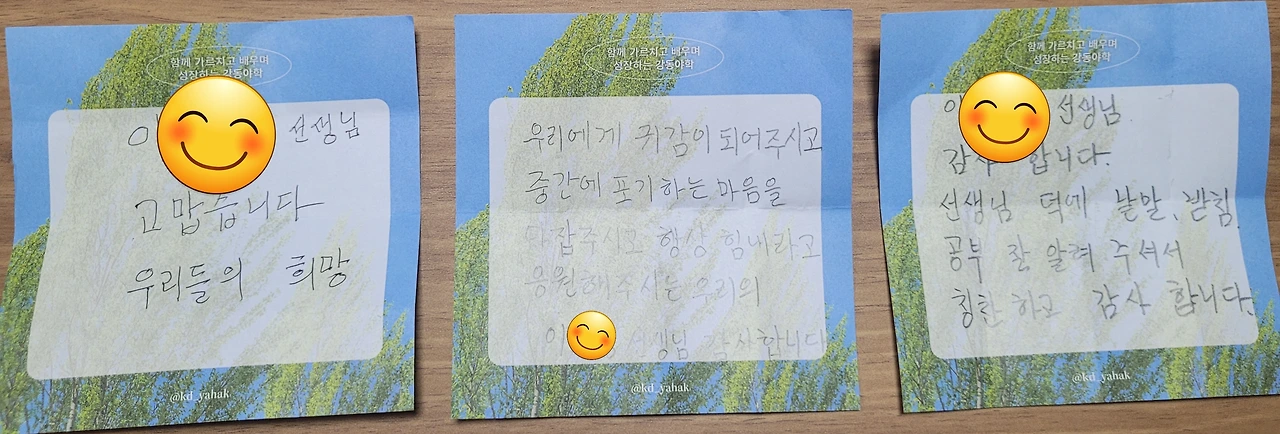 함께 가르치고 배우며
성장하는 강동야학
이 선생님
고맙습니다
우리들의 희망
@kd_yahak
함께 가르치고 배우며
성장하는 강동야학
우리에게 귀감이 되어주시고
중간에 포기하는 마음을
마잡주시고 행상 힘내라고
응원해주시는 우리의
이 선생님 감사합니다
@kd_yahak
함께 가르치고 배우며
성장하는 강동야학
이 선생님
감사 합니다.
선생님 덕에 낱말, 받침
공부 잘 알려 주셔서
칭찬 하고 감사 합니다.
@kd_yahak